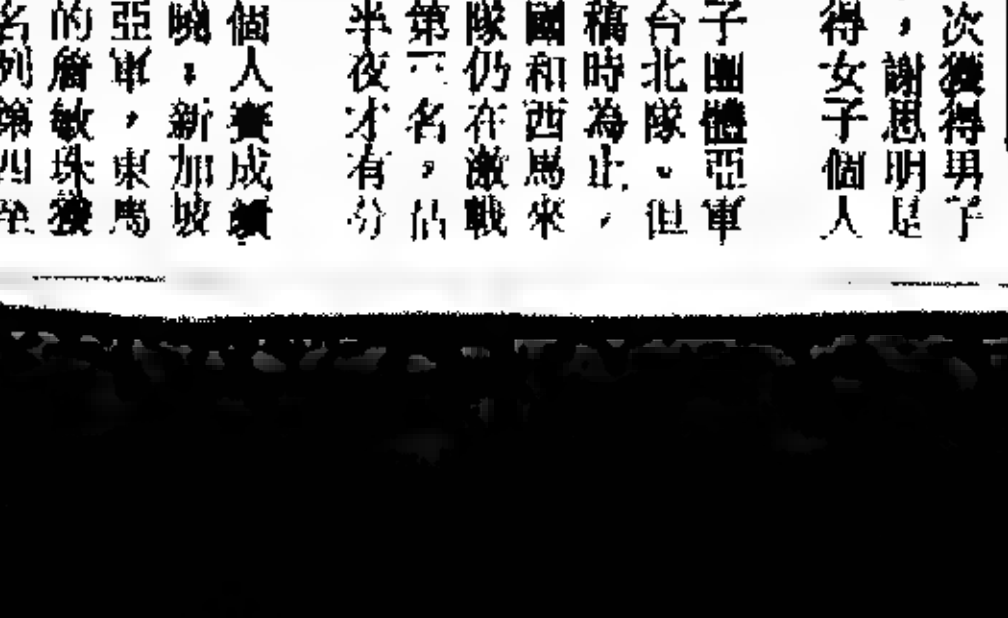 次獲得男子
，謝思明是
得女子個人
子團體亞軍
台北隊。但
稿時為止，
國和西馬來
隊仍在激戰
第二名，估
半夜才有分
個人賽成績
曉：新加坡
亞軍，東馬
的詹敏珠獲
名列第四